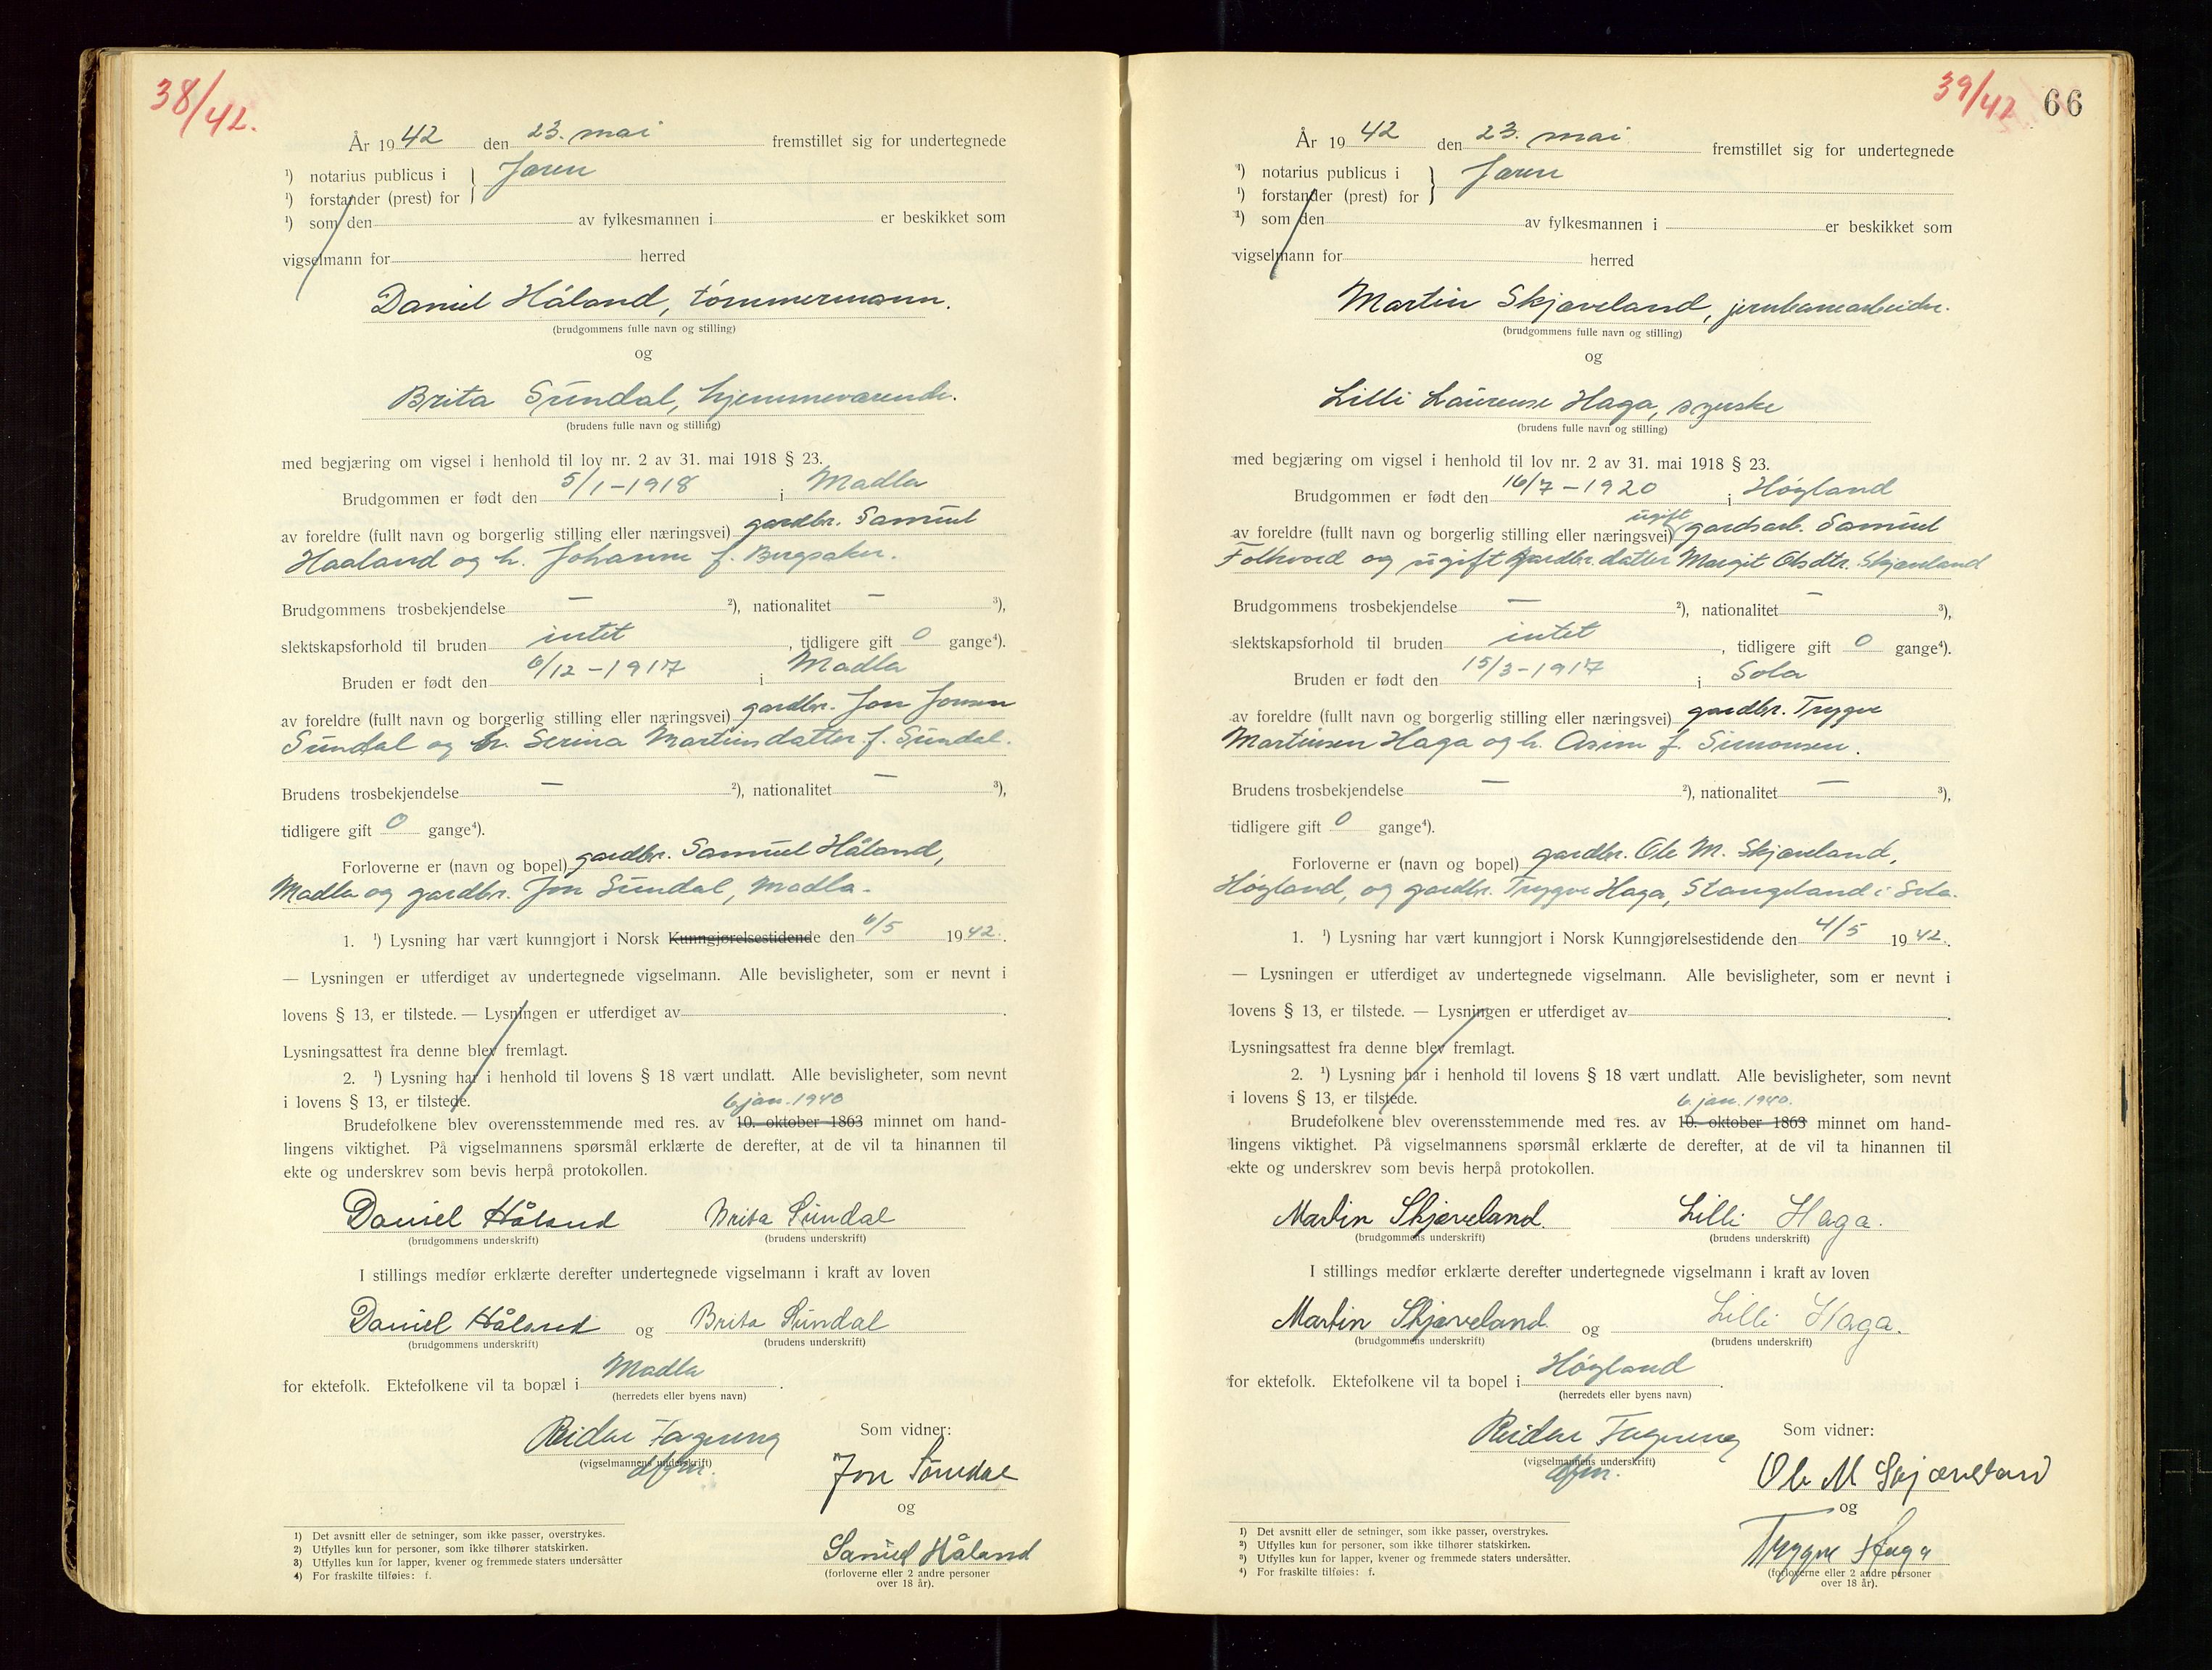 38/42.
År 1942 den 23. mai fremstillet sig for undertegnede
¹) notarius publicus i } Jæren
¹) forstander (prest) for
¹) som den av fylkesmannen i er beskikket som
vigselmann for herred
Daniel Håland, tømmermann.
(brudgommens fulle navn og stilling)
og
Brita Sundal, hjemmeværende.
(brudens fulle navn og stilling)
med begjæring om vigsel i henhold til lov nr. 2 av 31. mai 1918 § 23.
Brudgommen er født den 5/1-1918 i Madla
av foreldre (fullt navn og borgerlig stilling eller næringsvei) gardbr. Samuel
Haaland og h. Johanne f. Bergsaker.
Brudgommens trosbekjendelse — ²), nationalitet — ³),
slektskapsforhold til bruden intet, tidligere gift 0 gange⁴).
Bruden er født den 6/12-1917 i Madla
av foreldre (fullt navn og borgerlig stilling eller næringsvei) gardbr. Jon Jonsen
Sundal og h. Serina Martinsdatter f. Sundal.
Brudens trosbekjendelse — ²), nationalitet — ³),
tidligere gift 0 gange⁴).
Forloverne er (navn og bopel) gardbr. Samuel Håland,
Madla og gardbr. Jon Sundal, Madla.
1. ¹) Lysning har vært kunngjort i Norsk Kunngjørelsestidende den 6/5 1942.
— Lysningen er utferdiget av undertegnede vigselmann. Alle bevisligheter, som er nevnt i
lovens § 13, er tilstede. — Lysningen er utferdiget av .
Lysningsattest fra denne blev fremlagt.
2. ¹) Lysning har i henhold til lovens § 18 vært undlatt. Alle bevisligheter, som nevnt
i lovens § 13, er tilstede.
6 jan. 1940
Brudefolkene blev overensstemmende med res. av 10. oktober 1863 minnet om hand-
lingens viktighet. På vigselmannens spørsmål erklærte de derefter, at de vil ta hinannen til
ekte og underskrev som bevis herpå protokollen.
Daniel Håland Brita Sundal
(brudgommens underskrift) (brudens underskrift)
I stillings medfør erklærte derefter undertegnede vigselmann i kraft av loven
Daniel Håland og Brita Sundal
(brudgommens underskrift) (brudens underskrift)
for ektefolk. Ektefolkene vil ta bopæl i Madla .
(herredets eller byens navn)
Reidar
(vigselmannens underskrift)
Som vidner:
Jon Sundal
og
Samuel Håland
(forloverne eller 2 andre personer
over 18 år).
1) Det avsnitt eller de setninger, som ikke passer, overstrykes.
2) Utfylles kun for personer, som ikke tilhører statskirken.
3) Utfylles kun for lapper, kvener og fremmede staters undersåtter
4) For fraskilte tilføies: f.
39/42 66
År 1942 den 23. mai fremstillet sig for undertegnede
¹) notarius publicus i } Jæren
¹) forstander (prest) for
¹) som den av fylkesmannen i er beskikket som
vigselmann for herred
Martin Skjæveland, jernbanearbeider.
(brudgommens fulle navn og stilling)
og
Lilli Laurense Haga, syerske
(brudens fulle navn og stilling)
med begjæring om vigsel i henhold til lov nr. 2 av 31. mai 1918 § 23.
Brudgommen er født den 16/7-1920 i Høyland
ugift
av foreldre (fullt navn og borgerlig stilling eller næringsvei) gardsarb. Samuel
Folkvord og ugift gardbr. datter Margit Olsdtr. Skjæveland
Brudgommens trosbekjendelse — ²), nationalitet — ³),
slektskapsforhold til bruden intet, tidligere gift 0 gange⁴).
Bruden er født den 15/3-1917 i Sola
av foreldre (fullt navn og borgerlig stilling eller næringsvei) gardbr. Trygve
Martinsen Haga og h. f. Simonsen.
Brudens trosbekjendelse — ²), nationalitet — ³),
tidligere gift 0 gange⁴).
Forloverne er (navn og bopel) gardbr. Ole M. Skjæveland,
Høyland, og gardbr. Trygve Haga, Stangeland i Sola.
1. ¹) Lysning har vært kunngjort i Norsk Kunngjørelsestidende den 4/5 1942.
— Lysningen er utferdiget av undertegnede vigselmann. Alle bevisligheter, som er nevnt i
lovens § 13, er tilstede. — Lysningen er utferdiget av .
Lysningsattest fra denne blev fremlagt.
2. ¹) Lysning har i henhold til lovens § 18 vært undlatt. Alle bevisligheter, som nevnt
i lovens § 13, er tilstede.
6. jan. 1940.
Brudefolkene blev overensstemmende med res. av 10. oktober 1863 minnet om hand-
lingens viktighet. På vigselmannens spørsmål erklærte de derefter, at de vil ta hinannen til
ekte og underskrev som bevis herpå protokollen.
Martin Skjæveland. Lilli Haga.
(brudgommens underskrift) (brudens underskrift)
I stillings medfør erklærte derefter undertegnede vigselmann i kraft av loven
Martin Skjæveland. og Lilli Haga.
(brudgommens underskrift) (brudens underskrift)
for ektefolk. Ektefolkene vil ta bopel i Høyland .
(herredets eller byens navn)
Reidar
(vigselmannens underskrift)
Som vidner:
Ole M Skjæveland
og
Trygve Haga
(forloverne eller 2 andre personer
over 18 år).
1) Det avsnitt eller de setninger, som ikke passer, overstrykes.
2) Utfylles kun for personer, som ikke tilhører statskirken.
3) Utfylles kun for lapper, kvener og fremmede staters undersåtter.
4) For fraskilte tilføies: f.